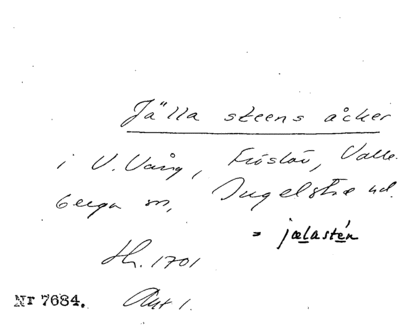 Jälla steens åcker
i V. Vång, Fröslöv, Valle-
berga sn, Ingelstre hd.
= jælastén
Lh. 1701
Akt 1.
Nr 7684.